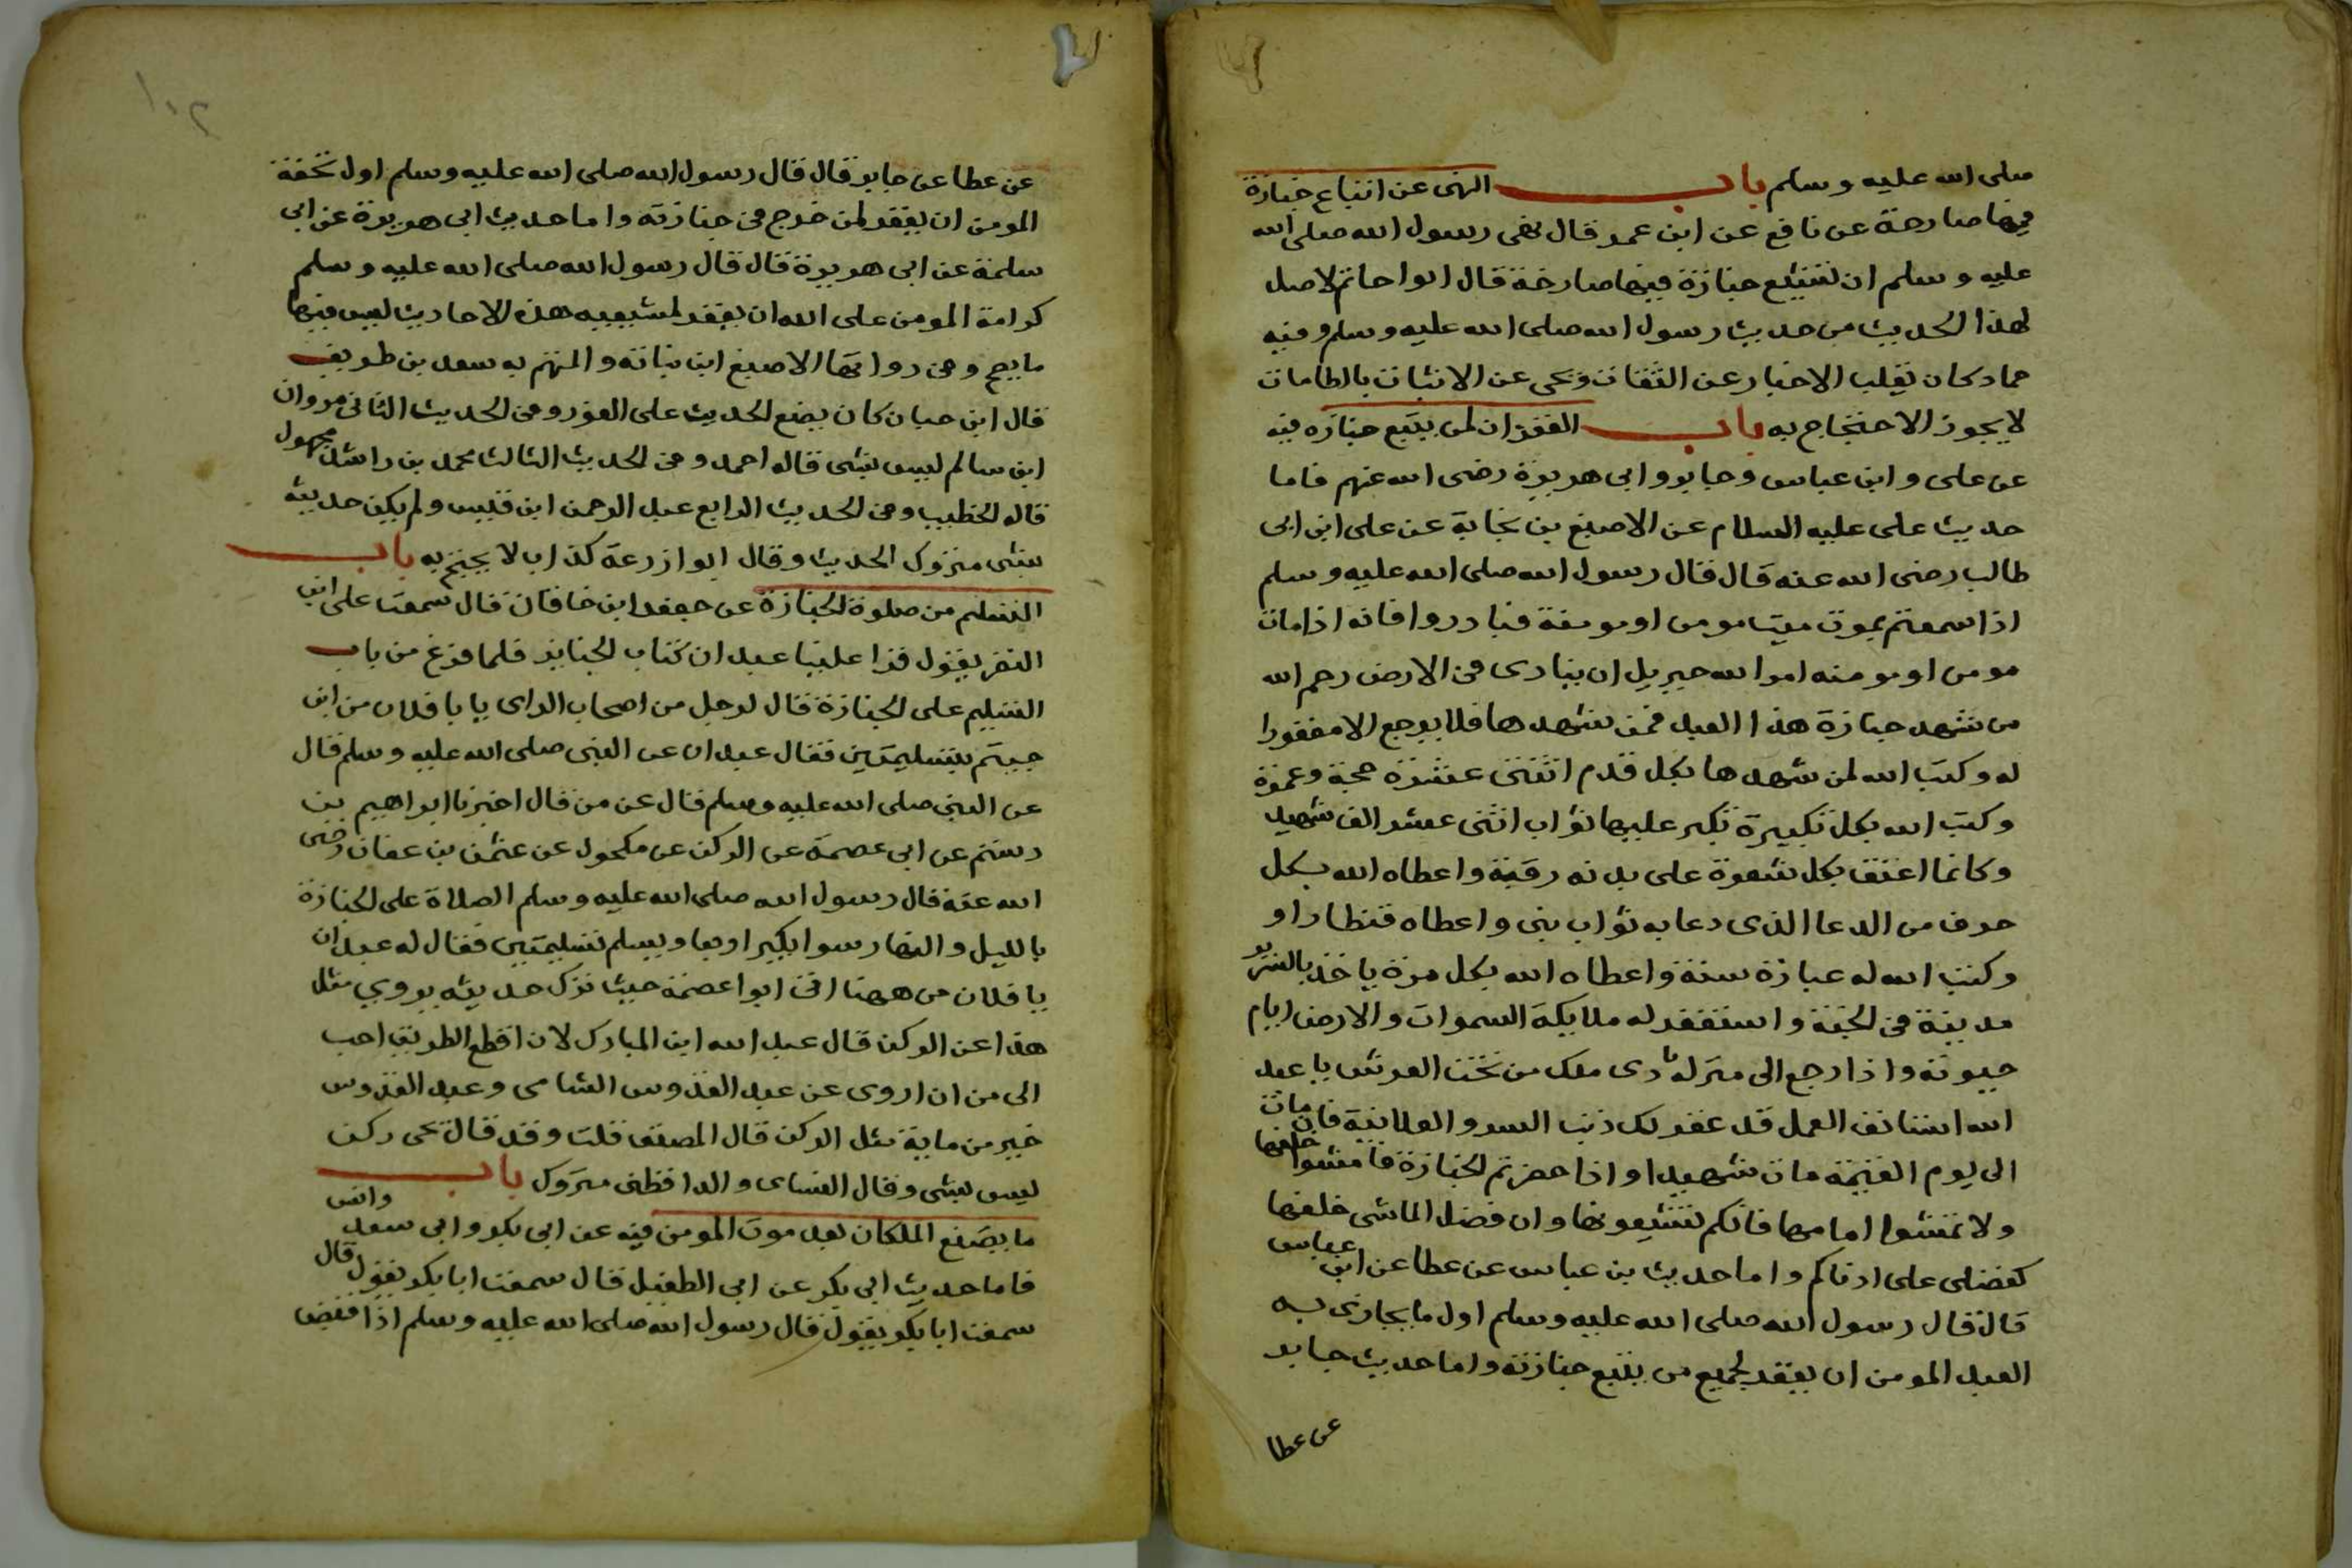 صلى الله عليه وسلم باب النهى عن اتباع جنازة
فيها صارخة عن نافع عن ابن عمر قال نهى رسول الله صلى الله
عليه وسلم ان نتبع جنازة فيها صارخة قال ابوا حاتم لا اصل
لهذا الحديث من حديث رسول الله صلى الله عليه وسلم وفيه
حماد كان يقلب الاخبار عن الثقات ويحى عن الاثبات بالطامات
لا يجوز الاحتجاج به باب الغفران لمن يتبع جنازه فيه
عن على وابن عباس وجابر وابى هريرة رضى الله عنهم فاما
حديث على عليه السلام عن الاصبغ بن نباتة عن على ابن ابى
طالب رضى الله عنه قال قال رسول الله صلى الله عليه وسلم
اذا سمعتم بموت ميت مومن او مومنة فبادروا فانه اذا مات
مومن او مومنه امر الله جبريل ان ينادى فى الارض رحم الله
من شهد جنازة هذا العبد فمن شهدها فلا يرجع الا مغفورا
له وكتب الله لمن شهدها بكل قدم اثنتى عشرة حجة وعمرة
وكتب الله بكل تكبيرة تكبر عليها ثواب اثنى عشر الف شهيد
وكانما اعتق بكل شعرة على بدنه رقبة واعطاه الله بكل
حرف من الدعا الذى دعا به ثواب نبى واعطاه قنطارا و
وكتب الله له عبادة سنة واعطاه الله بكل مرة ياخذ بالسرير
مدينة فى الجنة واستغفر له ملايكة السموات والارض ايام
حيوته واذا رجع الى منزله نادى ملك من تحت العرش يا عبد
الله استانف العمل قد غفر لك ذنب السر والعلانية فان مات
الى يوم القيمة مات شهيدا واذا حضرتم الجنازة فامشوا خلفها
ولا تمشوا امامها فانكم تشيعونها وان فضل الماشى خلفها
كفضلى على ادناكم واما حديث بن عباس عن عطا عن ابن عباس
قال قال رسول الله صلى الله عليه وسلم اول ما يجازى به
العبد المومن ان يغفر لجميع من يتبع جنازته واما حديث جابر
عن عطا
١٠٢
عن عطا عن جابر قال قال رسول الله صلى الله عليه وسلم اول تحفة
المومن ان يغفر لمن خرج فى جنازته واما حديث ابى هريرة عن ابى
سلمة عن ابى هريرة قال قال رسول الله صلى الله عليه وسلم
كرامة المومن على الله ان يغفر لمشيعيه هذه الاحاديث ليس فيها
ما يصح وفى رواتها الاصبغ ابن نباتة والمتهم به سعد بن طريف
قال ابن حبان كان يضع الحديث على الفور وفى الحديث الثانى مروان
ابن سالم ليس بشى قاله احمد وفى الحديث الثالث محمد بن راشد مجهول
قاله الخطيب وفى الحديث الرابع عبد الرحمن ابن قيس ولم يكن حديثه
بشى متروك الحديث وقال ابوا زرعة كذاب لا يحتج به باب
التسليم من صلوة الجنازة عن جعفر ابن خاقان قال سمعت على ابن
النضر يقول قرا علينا عبدان كتاب الجنايز فلما فرغ من باب
التسليم على الجنازة قال لرجل من اصحاب الراى يا با فلان من اين
جيتم بتسليمتين فقال عبدان عن النبى صلى الله عليه وسلم قال
عن النبى صلى الله عليه وسلم قال عن من قال اخبرنا ابراهيم بن
رستم عن ابى عصمة عن الركن عن مكحول عن عثمن بن عفان رضى
الله عنه قال رسول الله صلى الله عليه وسلم الصلاة على الجنازة
بالليل والنهار سوا يكبر اربعا ويسلم تسليمتين فقال له عبدان
يا فلان من ههنا اتى ابوا عصمة حيث ترك حديثه يروي مثل
هذا عن الركن قال عبد الله ابن المبارك لان اقطع الطريق احب
الى من ان اروى عن عبد القدوس الشامى وعبد القدوس
خير من ماية مثل الركن قال المصنف قلت وقد قال يحى ركن
ليس بشى وقال النساى والدارقطنى متروك باب
ما يصنع الملكان بعد موت المومن فيه عن ابى بكر وابى سعد وانس
فاما حديث ابى بكر عن ابى الطفيل قال سمعت ابا بكر يقول قال
سمعت ابا بكر يقول قال رسول الله صلى الله عليه وسلم اذا قبض